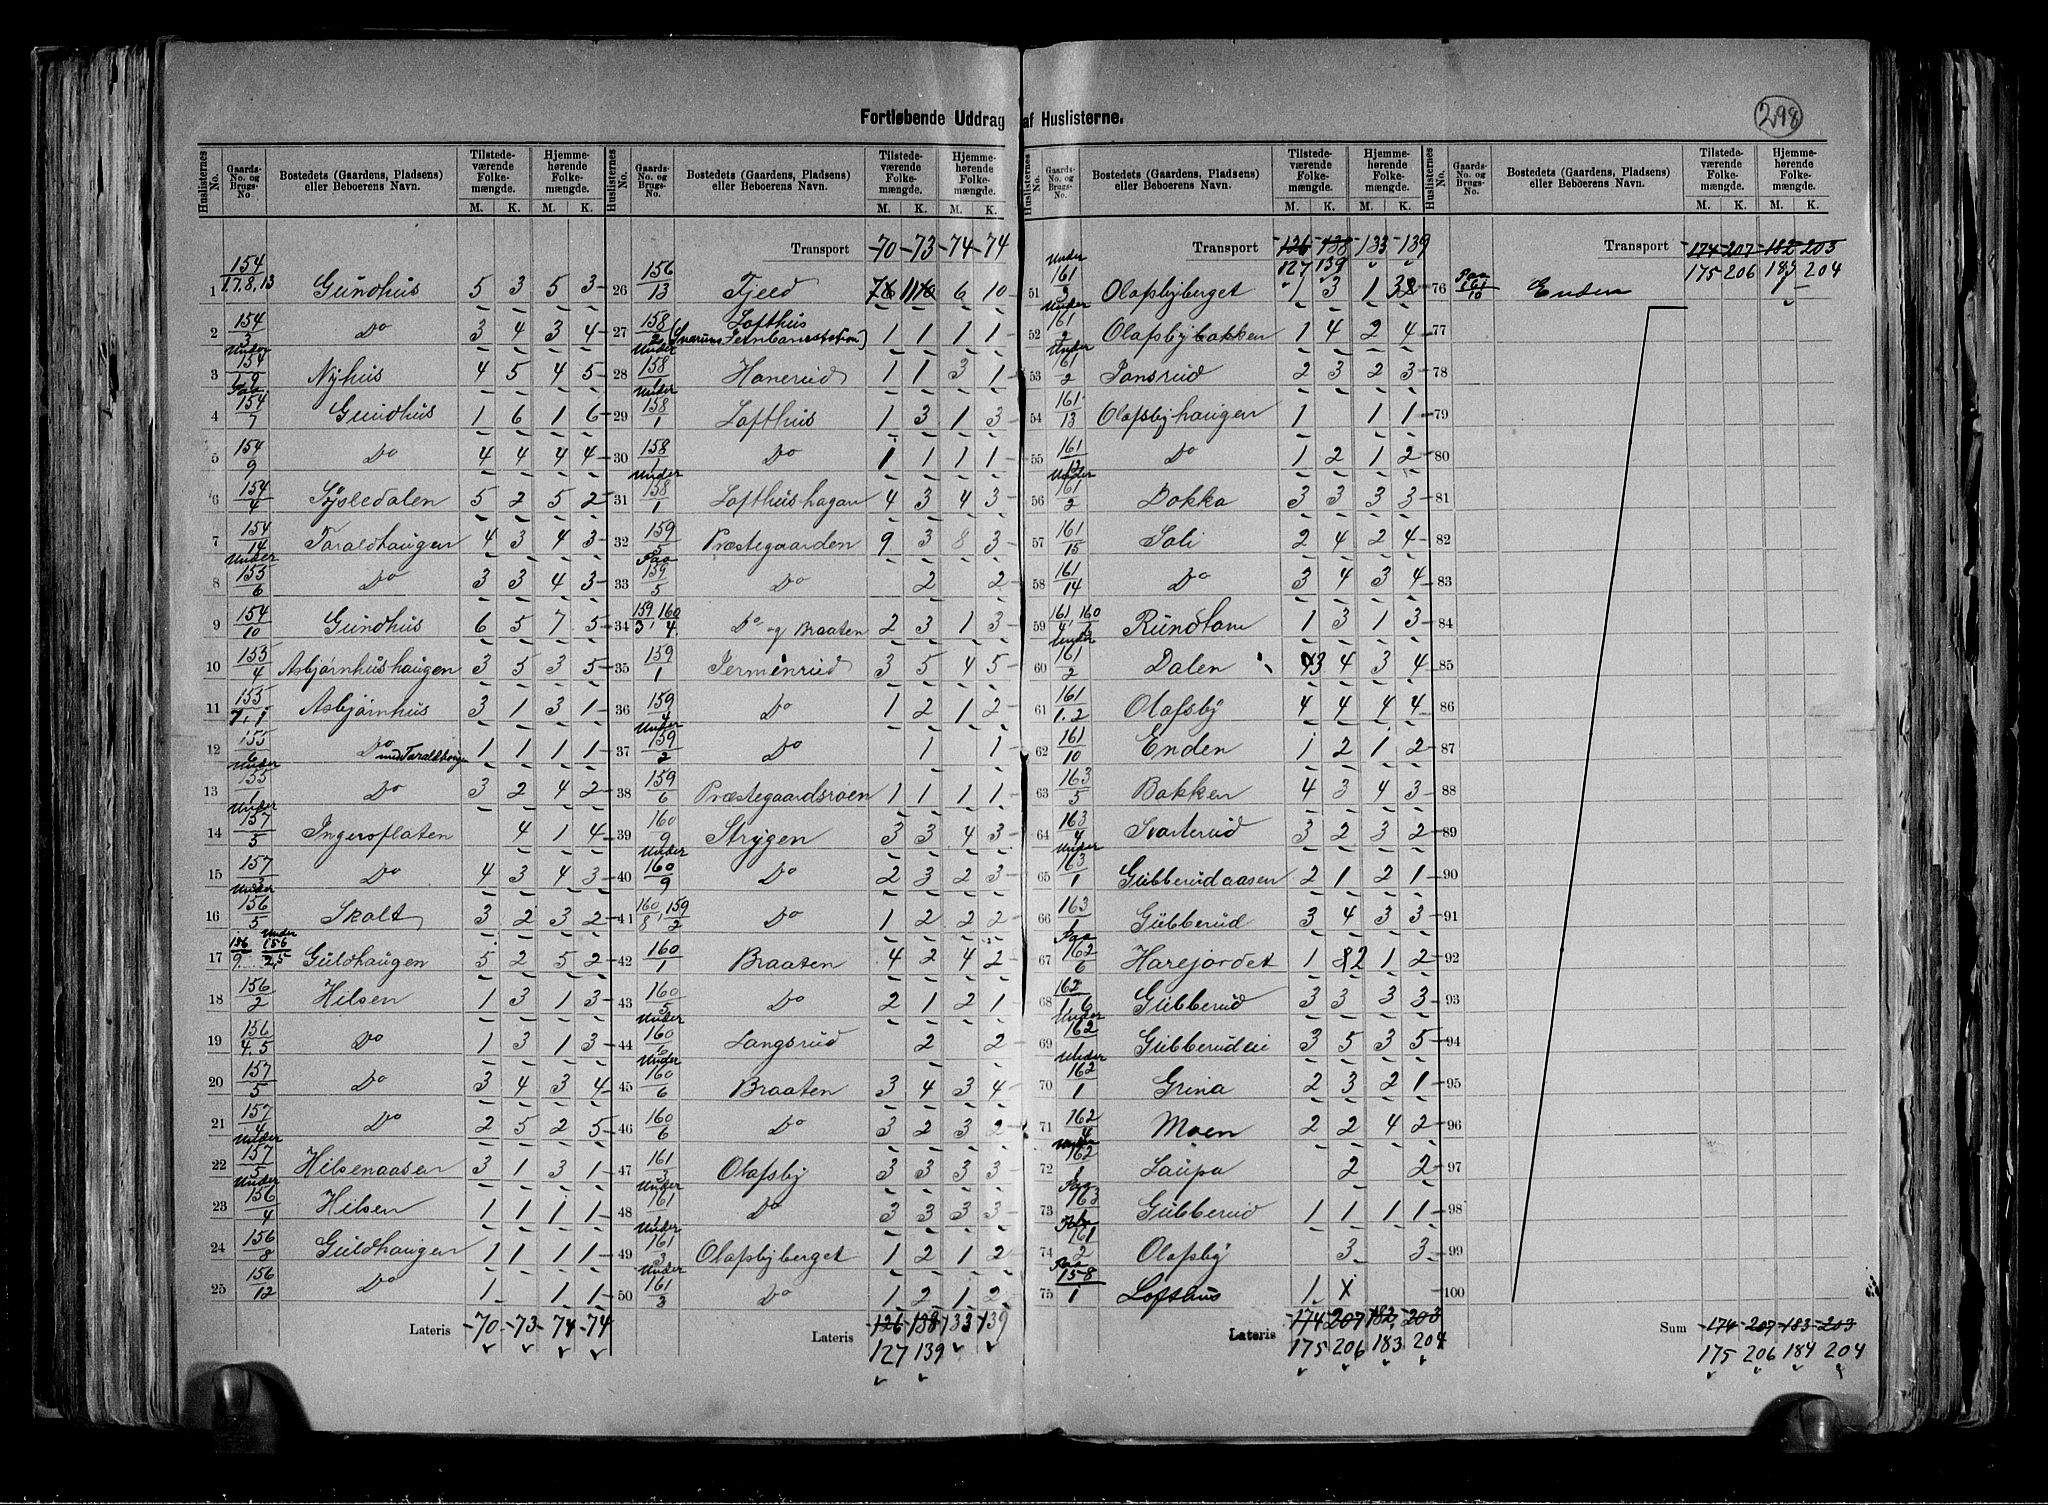 Fortløbende Uddrag af Huslisterne.
298
Huslisternes No. | Gaards-No. og Brugs-No. | Bostedets (Gaardens, Pladsens) eller Beboerens Navn. | Tilstedeværende Folkemængde. M. K. | Hjemmehørende Folkemængde. M. K.
1 154/1.7.8.13 Gundhus 5 3 5 3
2 154/3 Do 3 4 3 4
3 Under 154/6.9 Nyhus 4 5 4 5
4 Paa 154/7 Gundhus 1 6 1 6
5 154/9 Do 4 4 4 4
6 154/4 Sysledalen 5 2 5 2
7 154/14 Taraldhaugen 4 3 4 3
8 Under 155/6 Do 3 3 4 3
9 154/10 Gundhus 6 5 7 5
10 153/4 Asbjørnhushaugen 3 5 3 5
11 155/7.1 Asbjørnhus 3 1 3 1
12 155/6 Do med Taraldhaugen 1 1 1 1
13 Under 155/1 Do 3 2 4 2
14 Under 157/5 Ingersflaten 4 1 4
15 157/3 Do 4 3 4 3
16 Under 156/5 Skalt 3 2 3 2
17 156/9. Under 156/2,5 Guldhaugen 5 2 5 2
18 156/2 Hilsen 1 3 1 3
19 156/4.5 Do 1 3 1 3
20 157/5 Do 3 4 3 4
21 157/4 Do 2 5 2 5
22 Under 157/5 Hilsenaasen 3 1 3 1
23 Under 156/4 Hilsen 1 1 1 1
24 156/8 Guldhaugen 1 1 1 1
25 156/12 Do 1 1 1
Lateris 70 73 74 74
Huslisternes No. | Gaards-No. og Brugs-No. | Bostedets (Gaardens, Pladsens) eller Beboerens Navn. | Tilstedeværende Folkemængde. M. K. | Hjemmehørende Folkemængde. M. K.
Transport 70 73 74 74
26 156/13 Fjeld 6 10
27 158/2 Lofthus (Snarums Jernbanestation) 1 1 1 1
28 Under 158/1 Hanerud 1 1 3 1
29 Under 158/1 Lofthus 1 3 1 3
30 158/1 Do 1 1 1 1
31 Under 158/1 Lofthushagan 4 3 4 3
32 159/5 Præstegaarden 9 3 8 3
33 Paa 159/5 Do 2 2
34 159/3, 160/4. Do og Braaten 2 3 1 3
35 159/1 Jermenrud 3 5 4 5
36 159/4 Do 1 2 1 2
37 Under 159/2 Do 1 1
38 159/6 Præstegaardsroen 1 1 1 1
39 160/9 Strygen 3 3 4 3
40 Under 160/9 Do 2 3 2 3
41 160/8, 159/2 Do 1 2 2 2
42 160/1 Braaten 4 2 4 2
43 160/5 Do 2 1 2 1
44 Under 160/6 Langsrud 2 2
45 Under 160/6 Braaten 3 4 3 4
46 160/6 Do 3 2 3 2
47 161/3 Olafsby 3 3 3 3
48 Under 161/3 Do 3 3 3 3
49 Under 161/3 Olafsbyberget 1 2 1 2
50 Under 161/3 Do 1 2 1 2
Lateris 126 138 133 139
127 139
Huslisternes No. | Gaards-No. og Brugs-No. | Bostedets (Gaardens, Pladsens) eller Beboerens Navn. | Tilstedeværende Folkemængde. M. K. | Hjemmehørende Folkemængde. M. K.
Transport 126 138 133 139
127 139
51 Under 161/2 Olafsbyberget 1 3 1 3
52 Under 161/2 Olafsbybakken 1 4 2 4
53 Under 161/2 Jansrud 2 3 2 3
54 161/13 Olafsbyhaugen 1 1 1
55 161/12 Do 1 2 1 2
56 Under 161/2 Dokka 3 3 3 3
57 161/15 Soli 2 4 2 4
58 161/14 Do 3 4 3 4
59 161/4, 160/7 Rundtom 1 3 1 3
60 Under 161/2 Dalen 3 4 3 4
61 161/1.2 Olafsby 4 4 4 4
62 161/10 Enden 1 2 1 2
63 163/5 Bakken 4 3 4 3
64 163/4 Svarterud 3 2 3 2
65 Under 163/1 Gubberudaasen 2 1 2 1
66 163/1 Gubberud 3 4 3 3
67 Paa 162/6 Harejordet 1 2 1 2
68 162/1.6 Gubberud 3 3 3 3
69 Under 162/1 Gubberudeie 3 5 3 5
70 Under 162/1 Grina 2 3 2 1
71 162/4 Moen 2 2 4 2
72 Under 162/1 Laupa 2 2
73 Paa 163 Gubberud 1 1 1 1
74 Paa 161/2 Olafsby 3 3
75 Paa 158/1 Lofthus 1 X
Lateris 174 207 182 203
175 206 183 204
Huslisternes No. | Gaards-No. og Brugs-No. | Bostedets (Gaardens, Pladsens) eller Beboerens Navn. | Tilstedeværende Folkemængde. M. K. | Hjemmehørende Folkemængde. M. K.
Transport 174 207 182 203
175 206 183 204
76 Paa 161/10 Enden 1
77
78
79
80
81
82
83
84
85
86
87
88
89
90
91
92
93
94
95
96
97
98
99
100
Sum 174 207 183 203
175 206 184 204